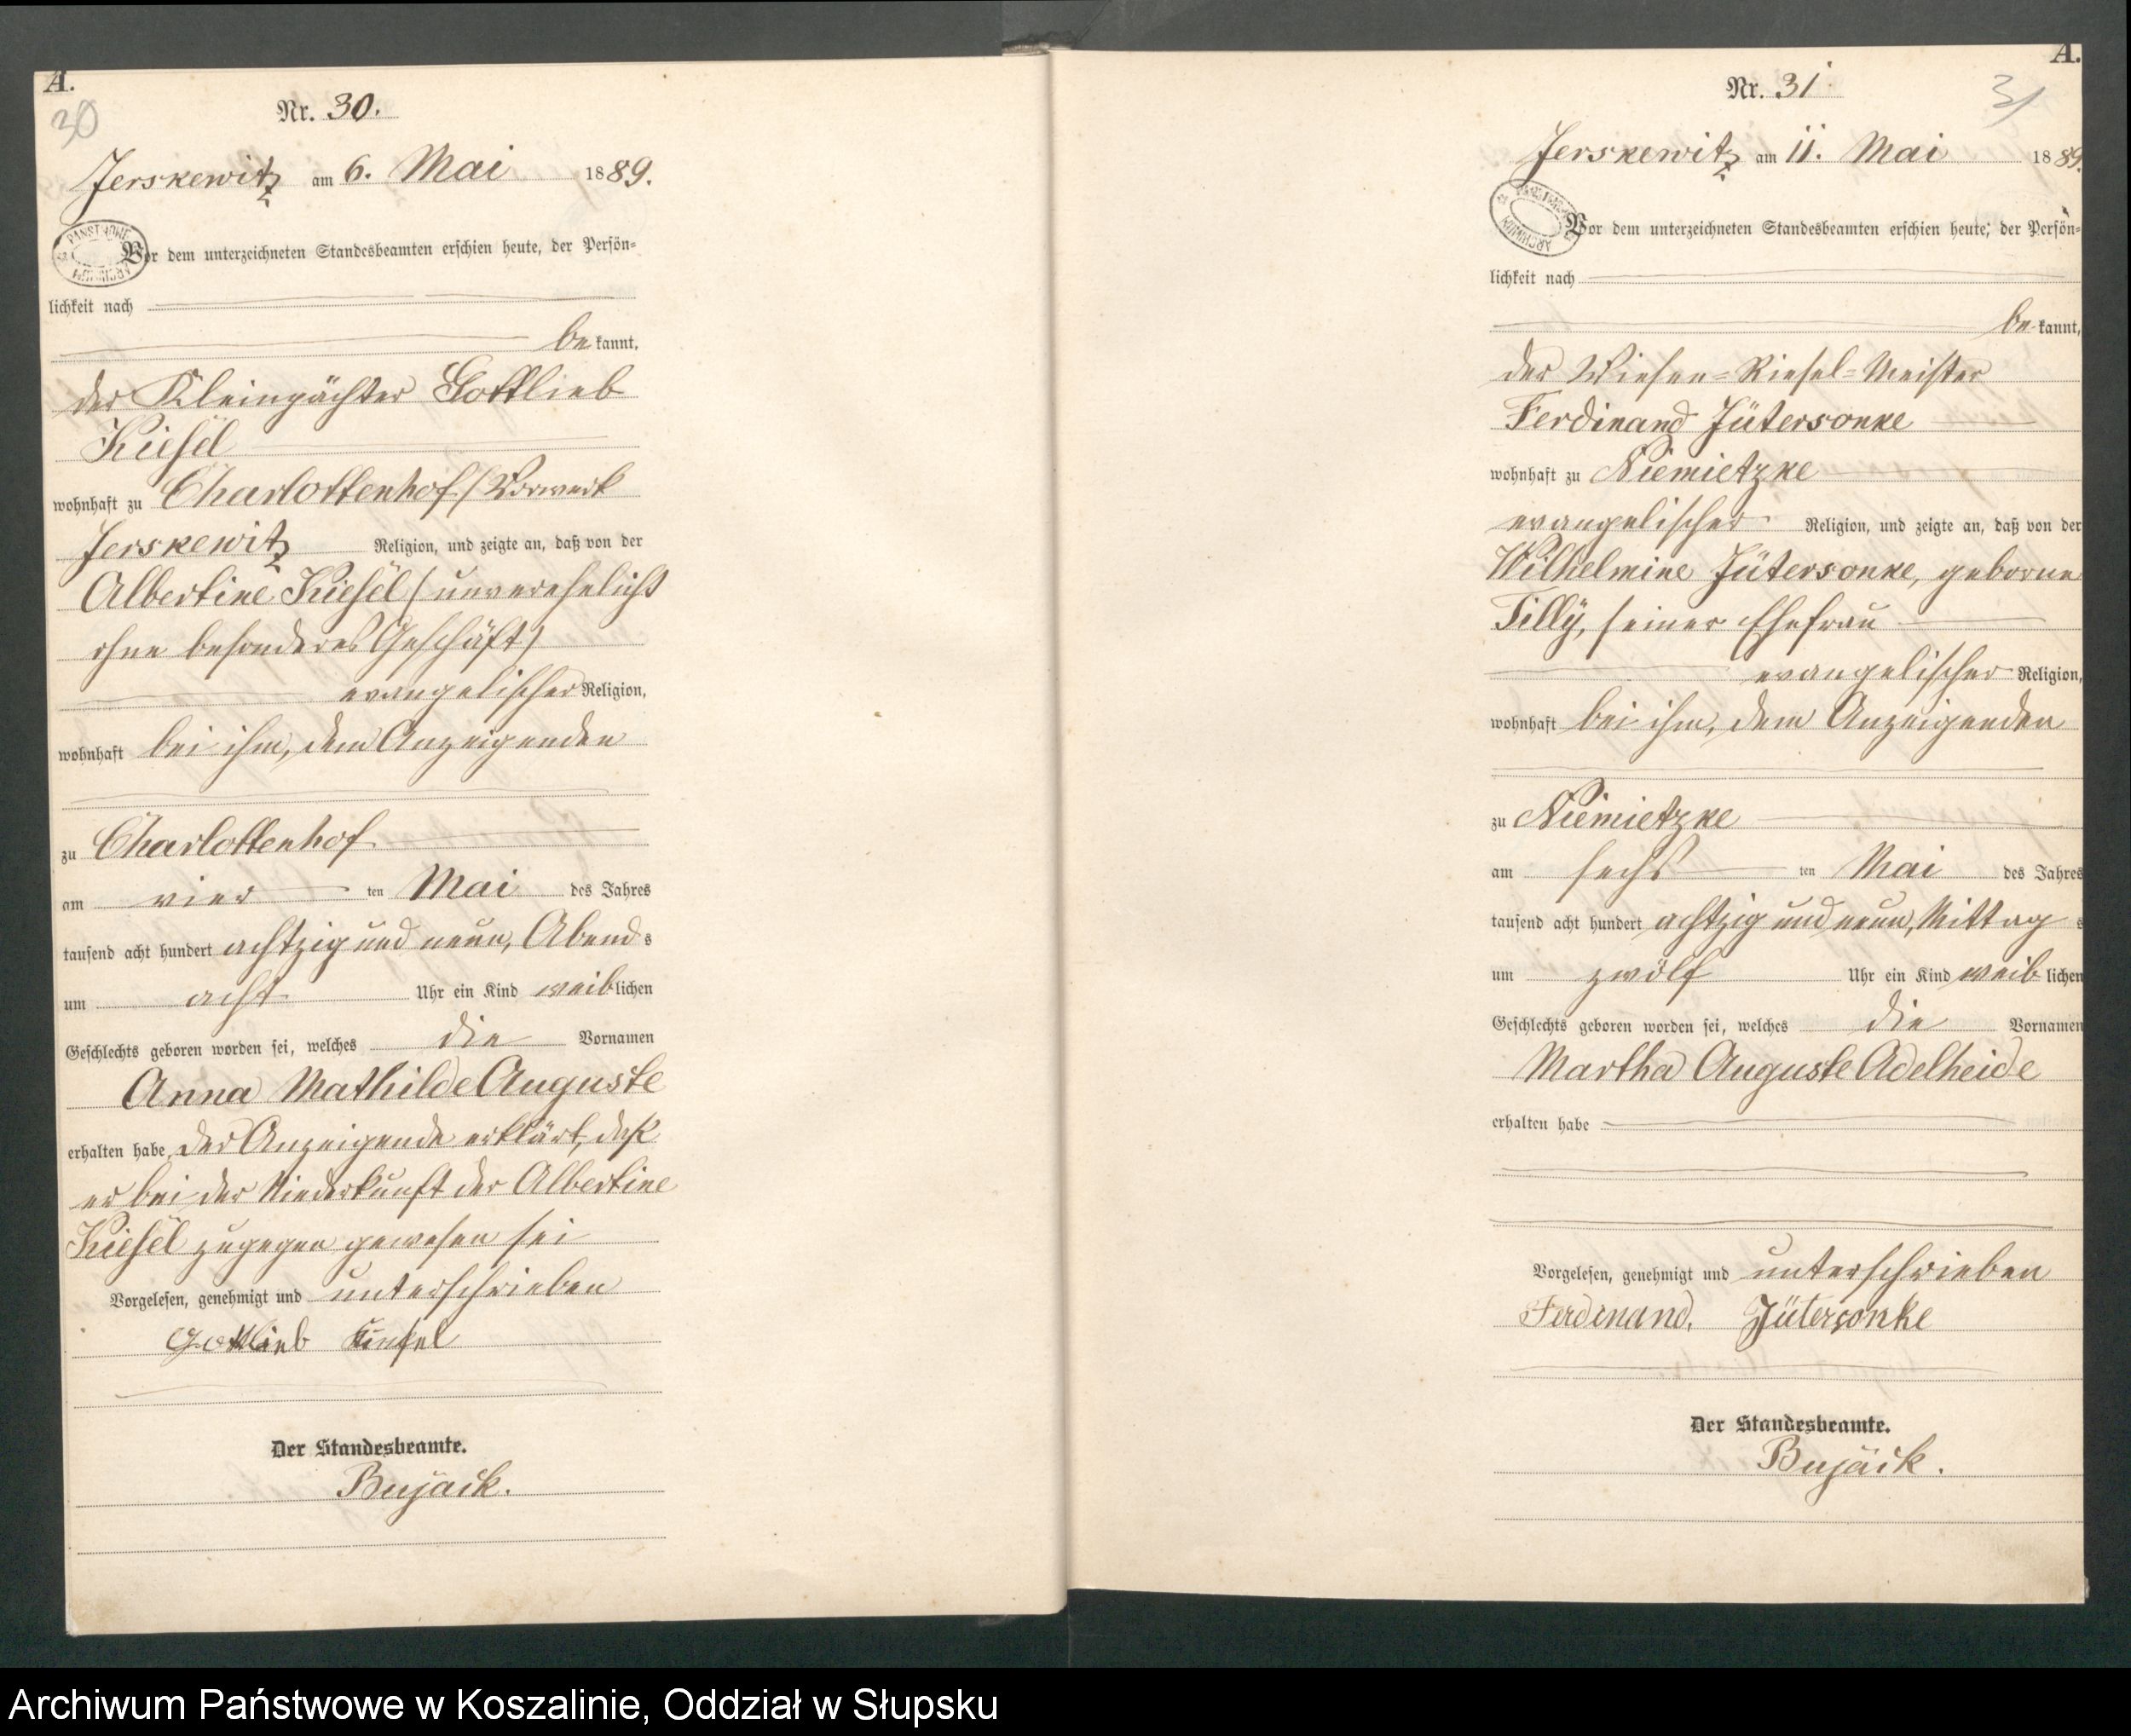 A.
30
Nr. 30.
Jerskewitz am 6. Mai 1889.
Vor dem unterzeichneten Standesbeamten erschien heute, der Persön-
lichkeit nach
be kannt,
der Kleinpächter Gottlieb
Kiesel
wohnhaft zu Charlottenhof (Vorwerk
Jerskewitz Religion, und zeigte an, daß von der
Albertine Kiesel (unverehelicht
ohne besonderes Geschäft)
evangelischer Religion,
wohnhaft bei ihm, dem Anzeigenden
zu Charlottenhof
am vier ten Mai des Jahres
tausend acht hundert achtzig und neun, Abend s
um acht Uhr ein Kind weib lichen
Geschlechts geboren worden sei, welches die Vornamen
Anna Mathilde Auguste
erhalten habe. Der Anzeigende erklärt, daß
er bei der Niederkunft der Albertine
Kiesel zugegen gewesen sei
Vorgelesen, genehmigt und unterschrieben
Gottlieb
Der Standesbeamte.
Bujack.
A.
31
Nr. 31
Jerskewitz am 11. Mai 1889.
Vor dem unterzeichneten Standesbeamten erschien heute, der Persön-
lichkeit nach
be kannt,
der Wiesen-Riesel-Meister
Ferdinand Jütersonke
wohnhaft zu Niemietzke
evangelischer Religion, und zeigte an, daß von der
Wilhelmine Jütersonke, geborne
Tilly, seiner Ehefrau
evangelischer Religion,
wohnhaft bei ihm, dem Anzeigenden
zu Niemietzke
am sechs ten Mai des Jahres
tausend acht hundert achtzig und neun, Mittag s
um zwölf Uhr ein Kind weib lichen
Geschlechts geboren worden sei, welches die Vornamen
Martha Auguste Adelheide
erhalten habe
Vorgelesen, genehmigt und unterschrieben
Ferdinand. Jütersonke
Der Standesbeamte.
Bujack.
Archiwum Państwowe w Koszalinie, Oddział w Słupsku